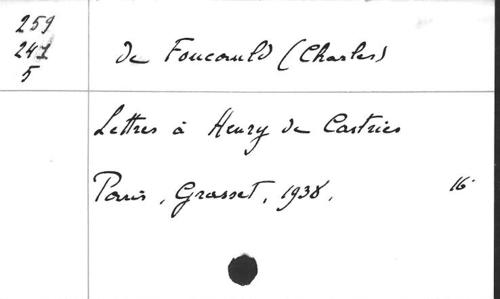 259
241
5
de Foucauld (Charles)
Lettres à Henry de Castries
Paris, Grasset, 1938,
16°